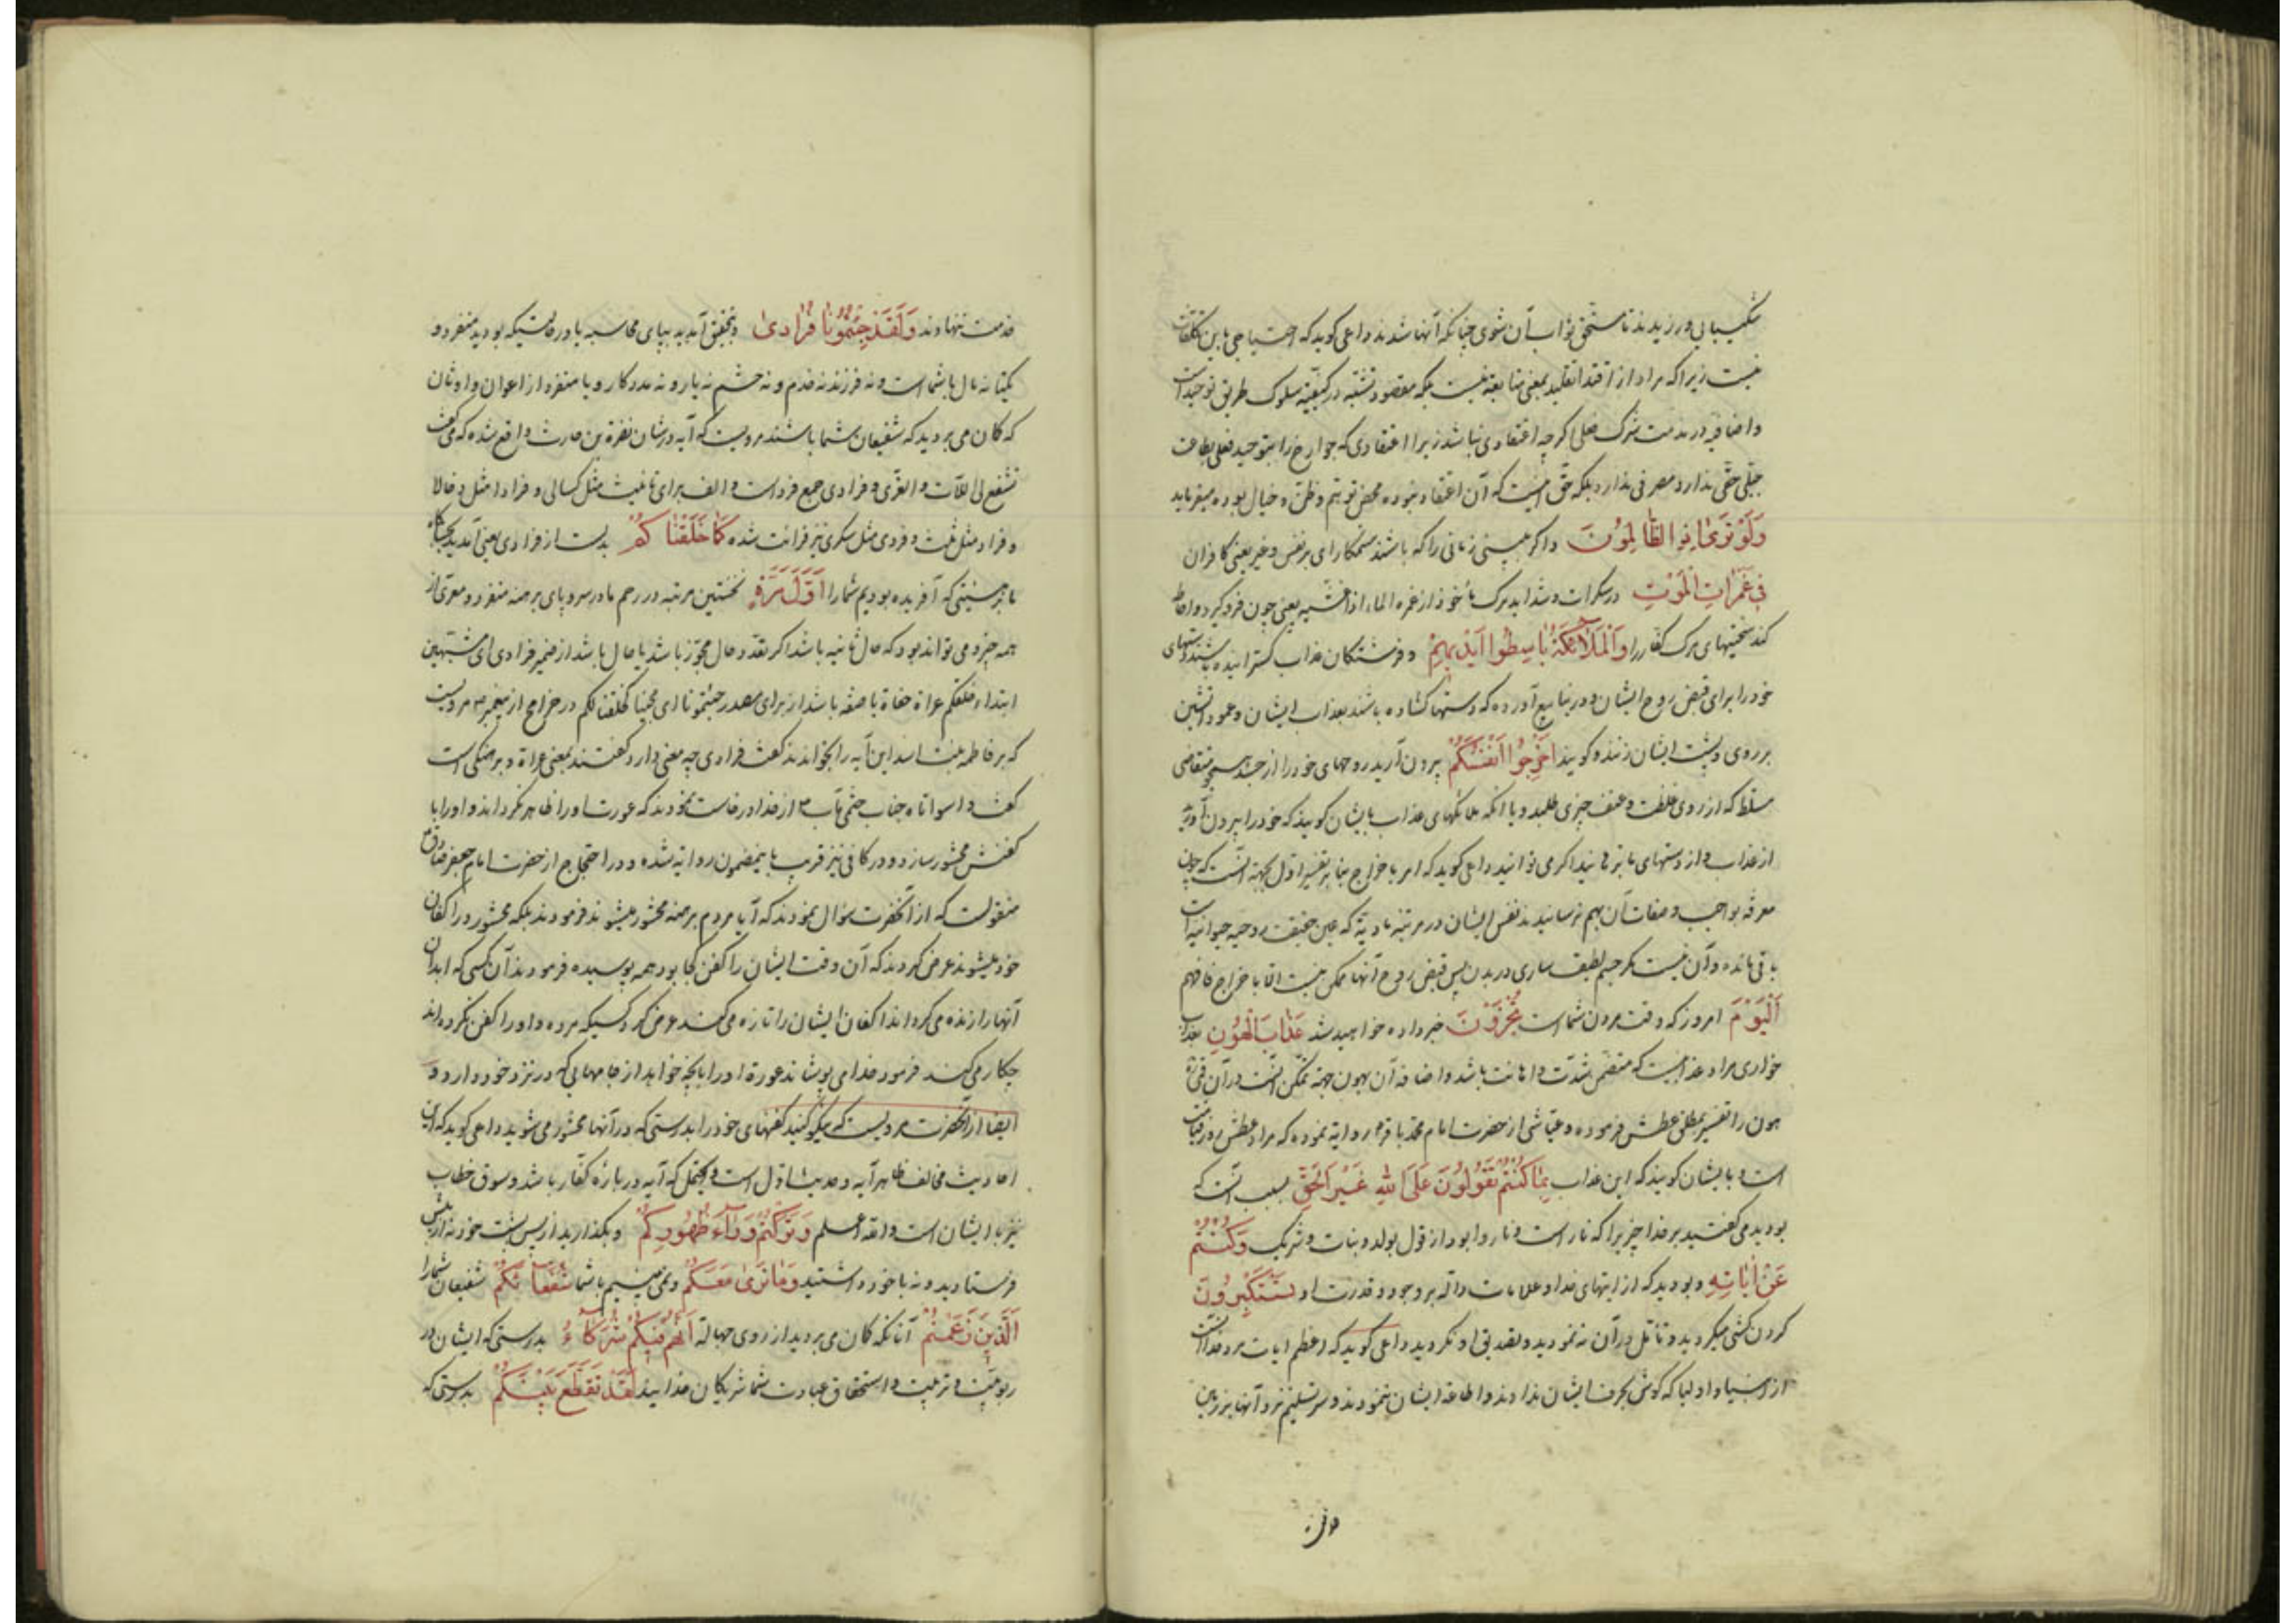 شکیبایی ورزیدند تا مستحق ثواب آن شوی چنانکه آنها شدند داعی کوید که احتیاجی باین تکلفات
نیست زیرا که مراد از اقتدا تقلید بمعنی متابعة نیست بلکه مقصود تشبّه در کیفیّة سلوک طریق توحید است
و اضافه در مذمت شرک فعلی اکرچه اعتقادی نباشد زیرا اعتقادی که جوارح را بتوحید فعلی بطاعت
جبلّی حقّی ندارد مصرفی ندارد بلکه حق اینست که آن اعتقاد نبوده محض توهّم و ظنّ و خیال بوده میفرماید
وَلَوْ تَرَىٰ اِذِ الظَّالِمُونَ و اکر ببینی زمانی را که باشند ستمکارای بر نفس و غیر یعنی کافران
فِي غَمَرَاتِ الْمَوْتِ در سکرات و شداید مرک مأخوذ از غمره الماء اذا غشیه یعنی چون فرو کیرد و احاطه
کند سختیهای مرک کفار را وَالْمَلَآئِكَةُ بَاسِطُوا اَيْدِيهِمْ و فرشتکان عذاب کسترانیده باشند دستهای
خود را برای قبض روح ایشان و در ینابیع آورده که دستها کشاده باشند بعذاب ایشان و عمود آتشین
بر روی و پشت ایشان زنند و کویند اَخْرِجُوا اَنْفُسَكُمْ بیرون آرید روحهای خود را از جسد همچو متقاضی
مسلّط که از روی غلظت و عنف چیزی طلبد و یا آنکه ملائکهای عذاب بایشان کویند که خود را بیرون آورید
از عذاب و از دستهای ما برهانید اکر می توانید داعی کوید که امر باخراج بنا بر تفسیر اول بجهة آنست که چون
معرفة بواجب و صفات آن بهم نرسانیدند نفس ایشان در مرتبه مادیّة که عین حقیقت روحیه حیوانیه است
باقی مانده و آن نیست مکر جسم لطیف ساری در بدن پس قبض روح آنها ممکن نیست الا باخراج فافهم
اَلْيَوْمَ امروز که وقت مردن شما است تُجْزَوْنَ جزا داده خواهید شد عَذَابَ الْهُونِ بعذاب
خواری مراد عذابیست که متضمن شدّت و اهانت باشد و اضافه آن بهون جهة تمکّن آنست در آن
هون را تفسیر بمطلق عطش فرموده و عیّاشی از حضرت امام محمّد باقر روایة نموده که مراد عطش روز قیامت
است و بایشان کویند که این عذاب بِمَا كُنْتُمْ تَقُولُونَ عَلَى اللهِ غَيْرَ الْحَقِّ بسبب آنست که
بودید می کفتید بر خدا چیزیرا که نارا است و ناروا بود از قول بولد و بنات و شریک وَكُنْتُمْ
عَنْ اٰيَاتِهِ و بودید که از ایتهای خدا و علامات دالّه بر وجود و قدرت او تَسْتَكْبِرُونَ
کردن کشی میکردید و تأمّل در آن نه نمودید و تصدیق او نکردید داعی کوید که اعظم ایات مر خدا
از انبیا و اولیا که کوش بحرف ایشان نداوند و اطاعة ایشان ننمودند و سر تسلیم نزد آنها بر زمین
خدمت ننهادند وَلَقَدْ جِئْتُمُونَا فُرَادَىٰ و بتحقیق آمدید بپای محاسبه یا در حالتیکه بودید منفرد و
یکتا نه مال با شما است و نه فرزند نه خدم و نه حشم نه یار و نه مددکار و یا منفرد از اعوان و اوثان
که کان می بردید که شفیعان شما باشند مرویست که آیه در شان نضرة بن حارث واقع شده که می گفت
تشفع لی اللّات و العزّی و فرادی جمع فرد است و الف برای تانیث مثل کسالی و فرادا مثل رخالا
و فراد مثل ثلث و فردی مثل سکری نیز قرائت شده كَمَا خَلَقْنَاكُمْ بدلست از فرادی یعنی آمدید
یا بر هیئتی که آفریده بودیم شما را اَوَّلَ مَرَّةٍ نخستین مرتبه در رحم مادر سر و پای برهنه منفرد و معرّی از
همه چیز و می تواند بود که حال ثانیه باشد اکر تعدّد حال مجوّز باشد یا حال باشد از ضمیر فرادی ای مشبهین
ابتداء خلقکم عراة حفاة یا صفة باشد از برای مصدر جئتمونا ای مجیئا کخلقنا لکم در خرایج از پیغمبر ص مرویست
که بر فاطمه بنت اسد این آیه را بخواندند کفت فرادی چه معنی دارد کفتند بمعنی عراة و برهنکی است
کفت وا سواتاه جناب ختمی مآب ص از خدا درخواست نمودند که عورت او را ظاهر نکرداند و او را با
کفنش محشور سازد و در کافی نیز قریب باینمضمون روایة شده و در احتجاج از حضرت امام جعفر صادق
منقولست که از آنحضرت سؤال نمودند که آیا مردم برهنه محشور میشوند فرمودند بلکه محشور در اکفان
خود میشوند عرض کردند که آن وقت ایشان را کفن کجا بود همه پوسیده فرمودند آن کسی که ابدان
آنها را زنده می کرداند اکفان ایشان را تازه می کند عرض کرد کسیکه مرده و او را کفن نکرده اند
چکار می کند فرمود خدا می پوشاند عورة او را بآنچه خواهد از جامهایی که در نزد خود دارد و
ایضا از آنحضرت مرویست که نیکو کنید کفنهای خود را بدرستی که در آنها محشور می شوید داعی کوید که این
احادیث مخالف ظاهر آیه و حدیث اول است و یحتمل که آیه در باره کفّار باشد و سوق خطاب
نیز با ایشان است و الله اعلم وَتَرَكْتُمْ وَرَآءَ ظُهُورِكُمْ و بکذارید از پس پشت خود نه از پیش
فرستادید و نه با خود داشتید وَمَا نَرَىٰ مَعَكُمْ و نمی بینیم با شما شُفَعَآئَكُمُ شفیعان شما را
اَلَّذِينَ زَعَمْتُمْ آنانکه کان می بردید از روی جهالة اَنَّهُمْ فِيكُمْ شُرَكَآءُ بدرستی که ایشان در
ربوبیّت و تربیت و استحقاق عبادت شما شریکان خدایند لَقَدْ تَقَطَّعَ بَيْنَكُمْ بدرستی که